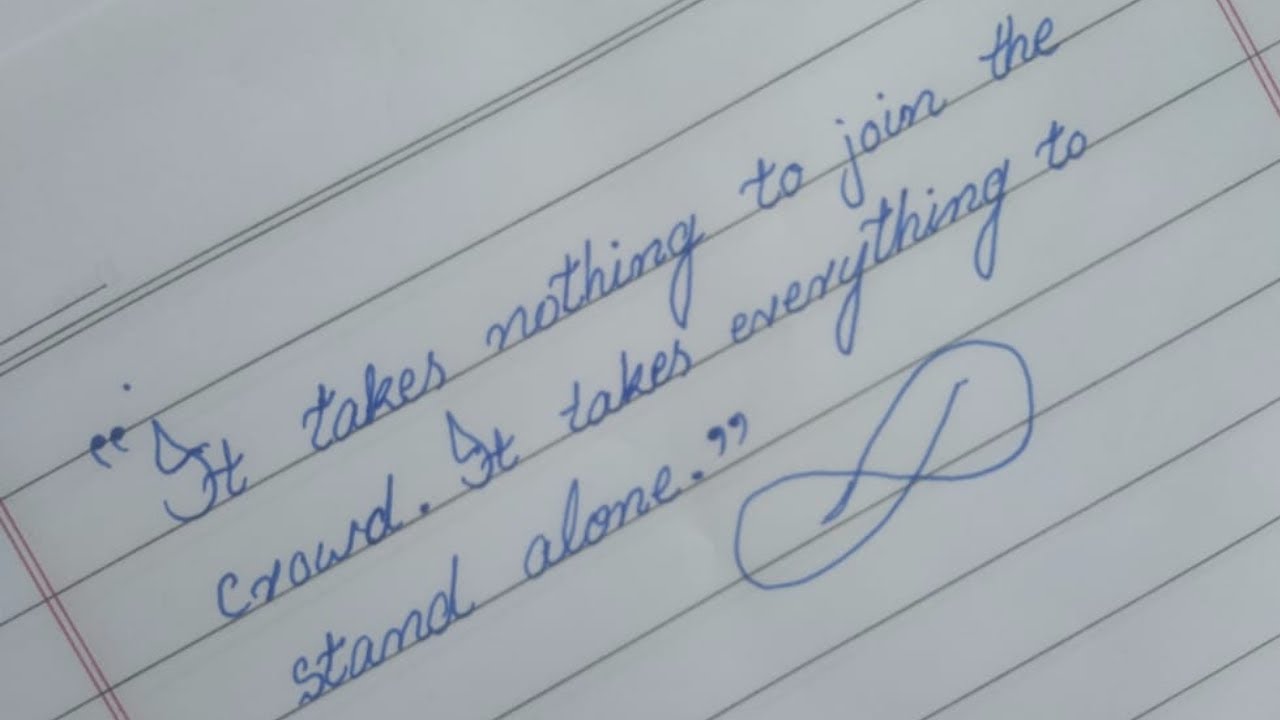 “It takes nothing to join the
crowd. It takes everything to
stand alone.”